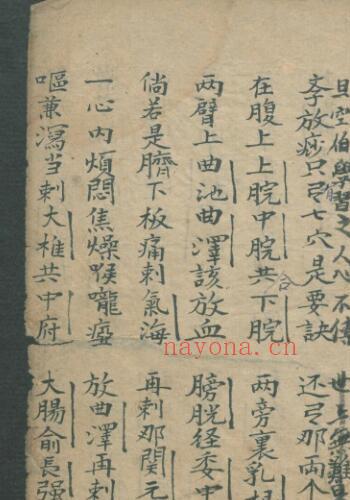 學習之人心不傳
世上無難
放痧只弓七穴是要訣
还弓那两个
在腹上上脘中脘共下脘
合
两旁裏乳
两臂上曲池曲澤該放血
膀胱径委中
倘若是臍下板痛刺氣海
再刺那関元
一心内煩悶焦燥喉嚨瘂
放曲澤再刺
嘔兼瀉当刺大椎共中府
大腸俞長强
nayona.cn